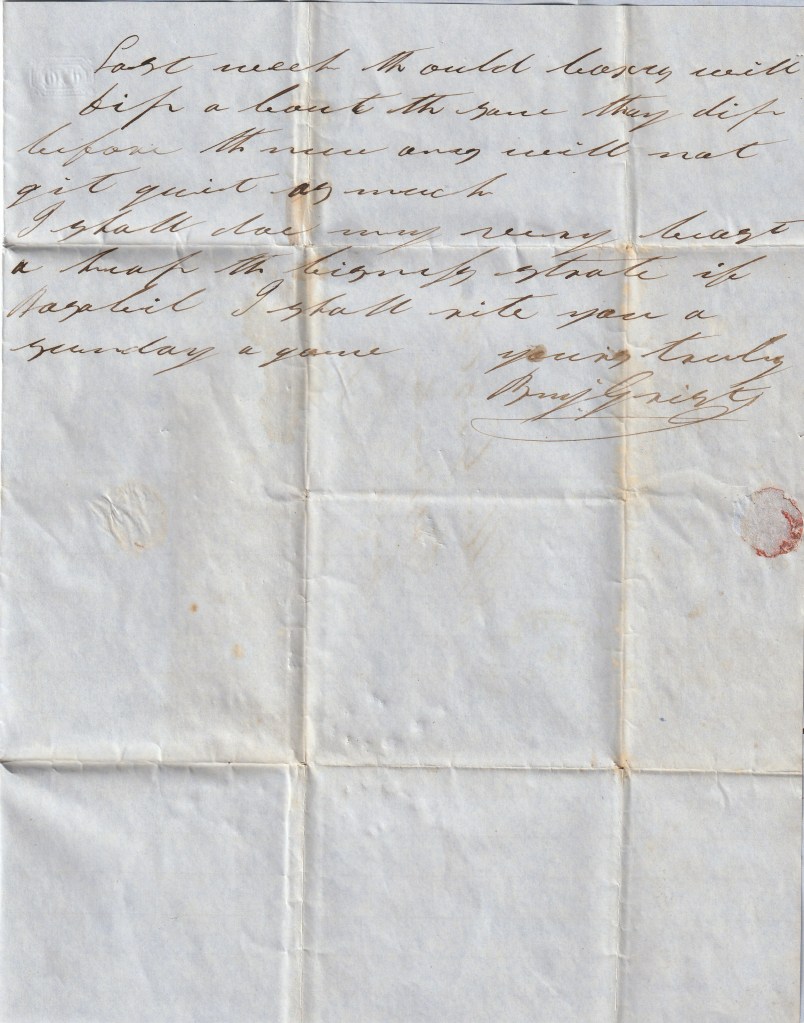 Last week th ould boxes will
dip a bout th same thay dip
before th nue ones will not
git quiet as much
I shall doe my very beast
a keap th bisness strate if
I shall rite you a
sunday a gane yours truly
Benj Grist